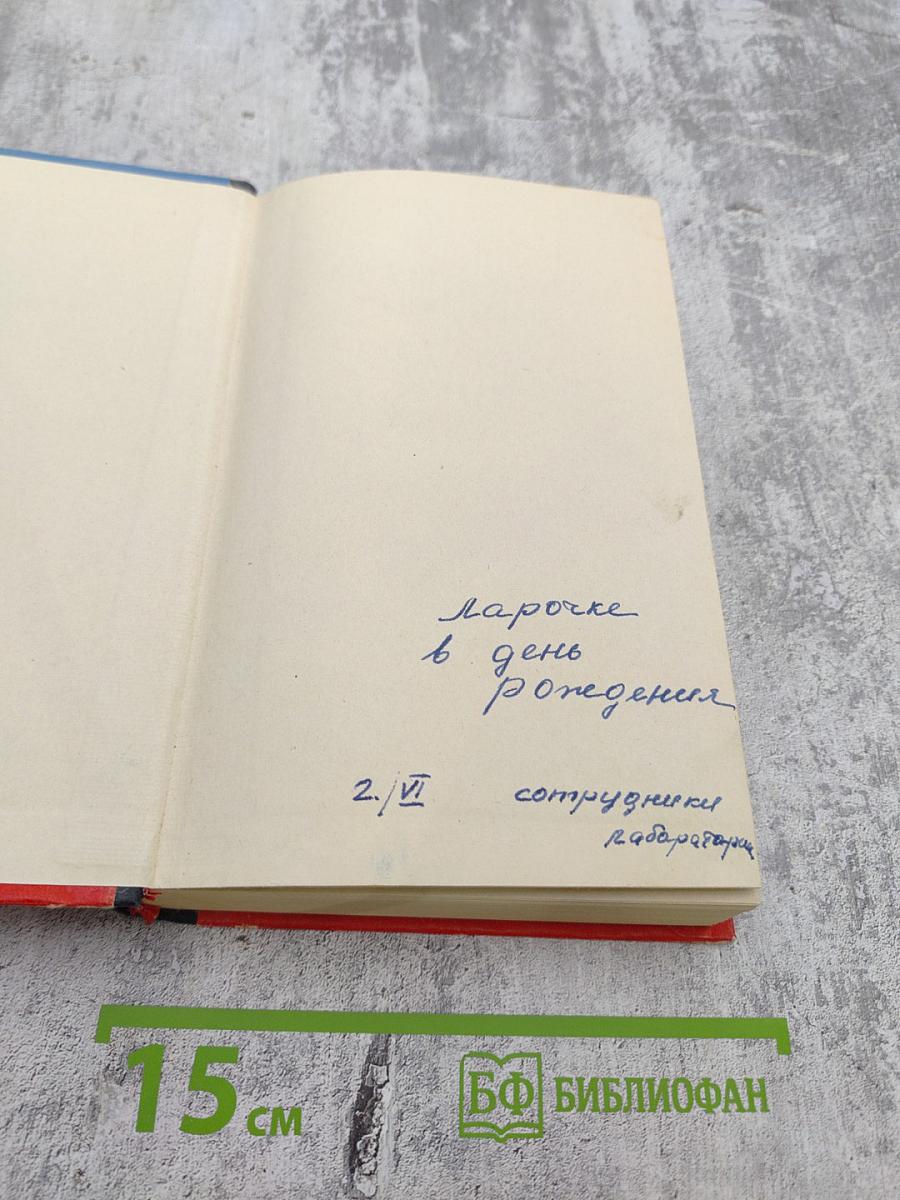 Ларочке
в день
рождения
2./VI сотрудники
лаборатории
15 см
БФ БИБЛИОФАН